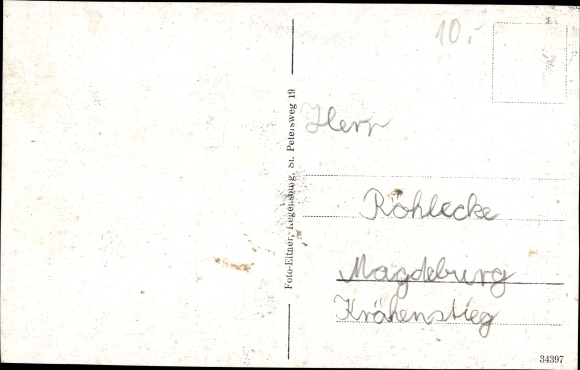 10.-
Foto-Eitner, Regensburg, St. Petersweg 19
Herr
Röhlecke
Magdeburg
Krähenstieg
34397